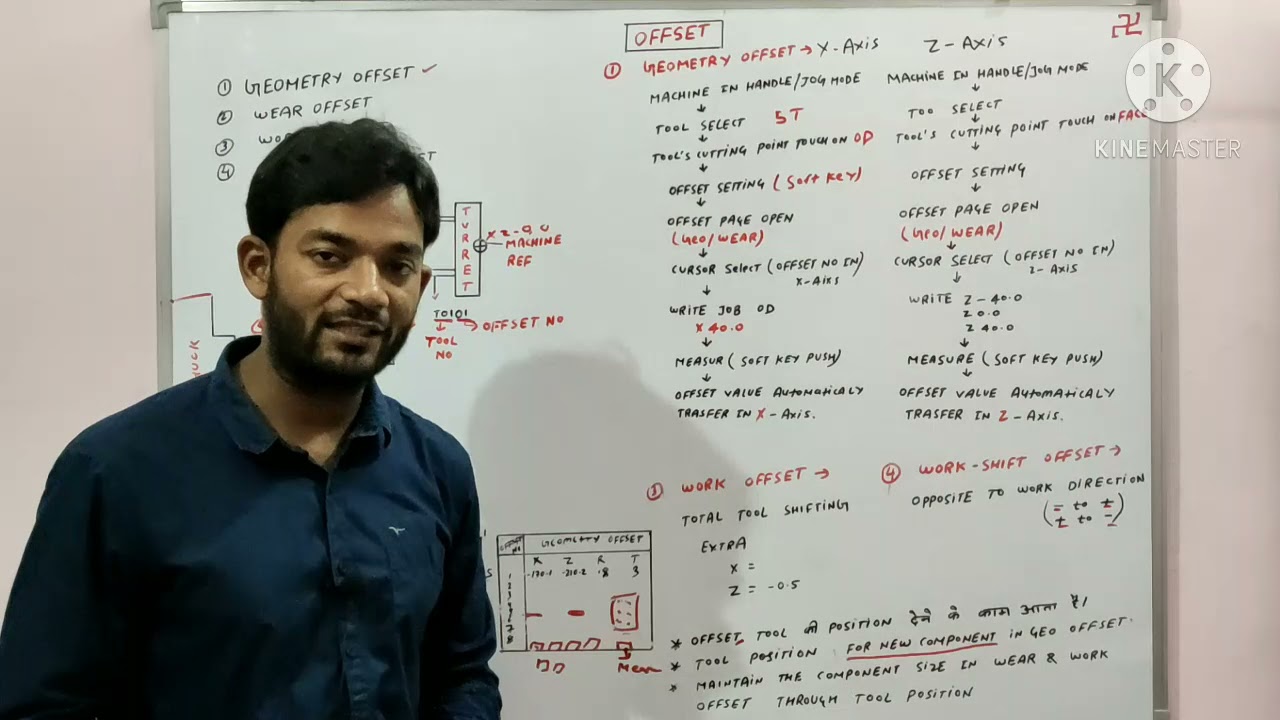 OFFSET
① GEOMETRY OFFSET ✓
② WEAR OFFSET
③ WO
④
T
TURRET
X Z-0.0
MACHINE
REF
T0101
OFFSET NO
TOOL
NO
HUCK
① GEOMETRY OFFSET → X-AXIS
MACHINE IN HANDLE/JOG MODE
↓
TOOL SELECT 5T
↓
TOOL'S CUTTING POINT TOUCH ON OD
↓
OFFSET SETTING (Soft Key)
↓
OFFSET PAGE OPEN
(Geo/WEAR)
↓
CURSOR SELECT (OFFSET NO IN)
X-AIXS
↓
WRITE JOB OD
X 40.0
↓
MEASUR (SOFT KEY PUSH)
↓
OFFSET VALUE AUTOMATICALY
TRASFER IN X-AXIS.
Z-AXIS
MACHINE IN HANDLE/JOG MODE
↓
TOO SELECT
↓
TOOL'S CUTTING POINT TOUCH ON FACE
↓
OFFSET SETTING
↓
OFFSET PAGE OPEN
(GEO/WEAR)
↓
CURSOR SELECT (OFFSET NO IN)
Z-AXIS
↓
WRITE Z-40.0
Z 0.0
Z 40.0
↓
MEASURE (SOFT KEY PUSH)
↓
OFFSET VALUE AUTOMATICALY
TRASFER IN Z-AXIS.
③ WORK OFFSET →
TOTAL TOOL SHIFTING
EXTRA
X =
Z = -0.5
④ WORK-SHIFT OFFSET →
OPPOSITE TO WORK DIRECTION
GEOMETRY OFFSET
X Z R T
1 -170.1 -210.2 .8 3
2
3
7
8
* OFFSET, TOOL की POSITION देने के काम आता है।
* TOOL POSITION FOR NEW COMPONENT IN GEO OFFSET.
* MAINTAIN THE COMPONENT SIZE IN WEAR & WORK
OFFSET THROUGH TOOL POSITION
K
KINEMASTER